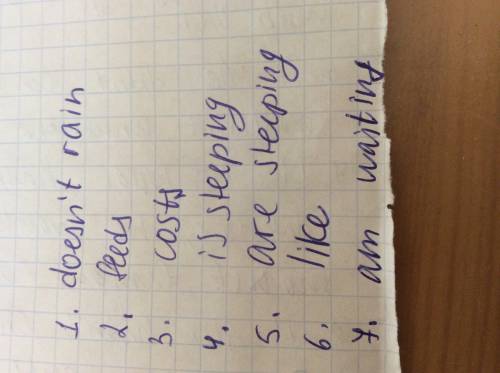 1. doesn't rain
2. feeds
3. costs
4. is sleeping
5. are sleeping
6. like
7. am waiting